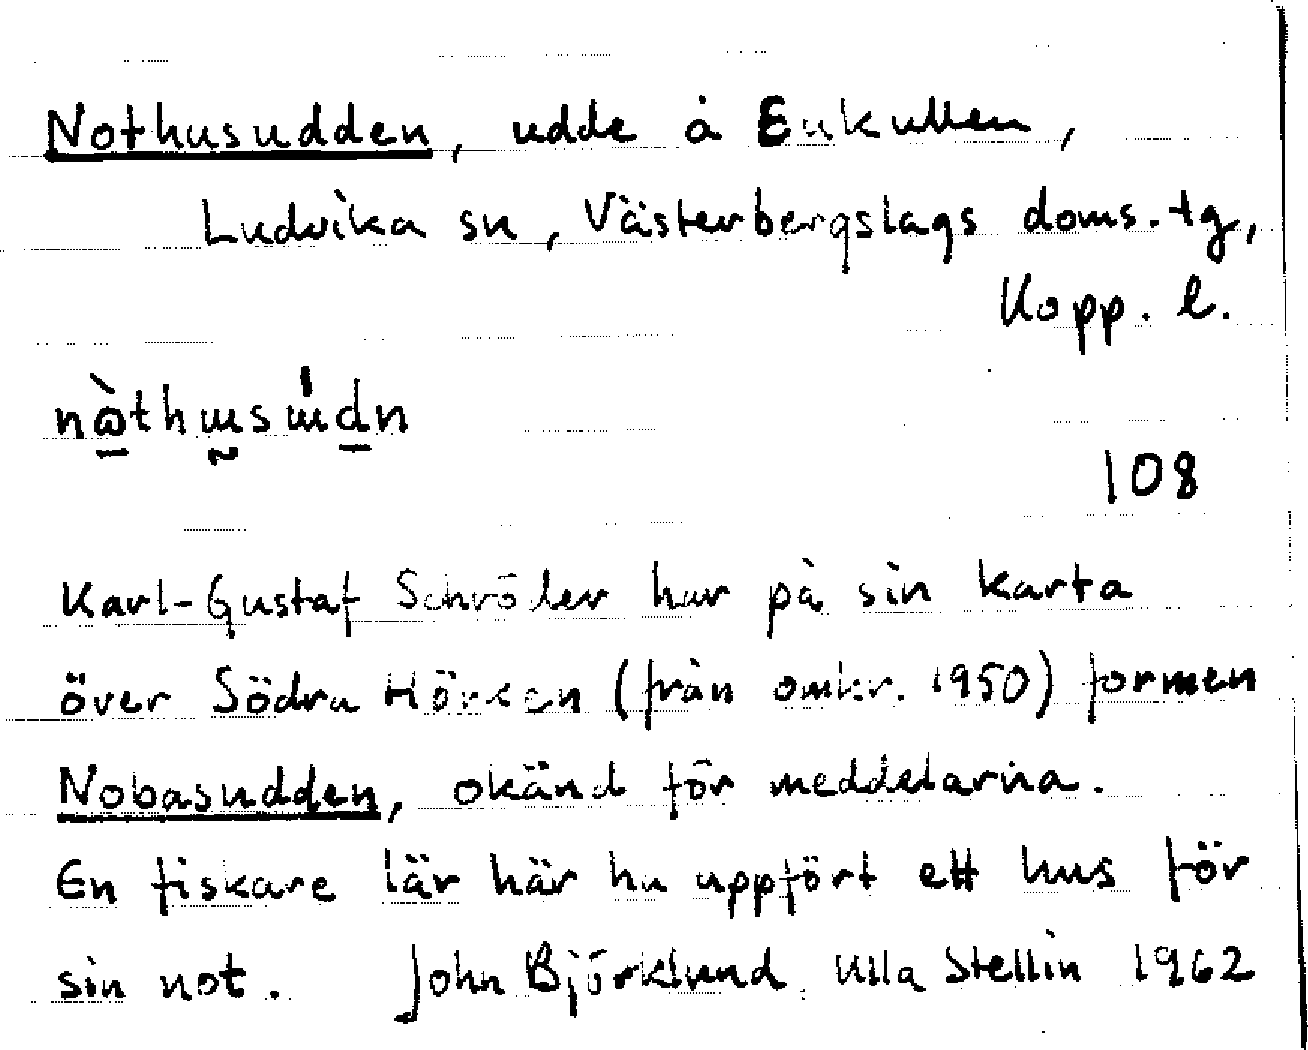 Nothusudden, udde å Enkullen,
Ludvika sn, Västerbergslags doms.tg,
Kopp. l.
108
Karl-Gustaf Schröder har på sin karta
över Södra Hörken (från omkr. 1950) formen
Nobasudden, okänd för meddelarna.
En fiskare lär här ha uppfört ett hus för
sin not. John Björklund, Ulla Stellin 1962